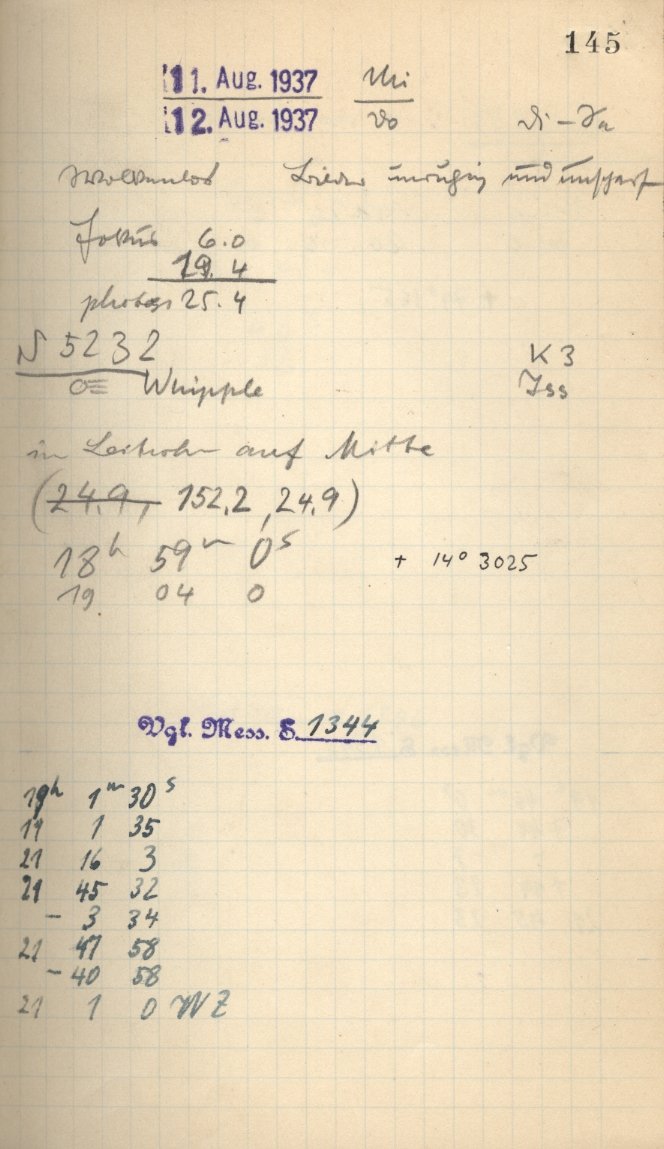 145
11. Aug. 1937 Mi
12. Aug. 1937 Do Di – Ja
wolkenlos Bilder unruhig und unscharf
Fokus 6.0
19.4
photogr 25.4
N 5232 K 3
Whipple Iss
im Leitrohr auf Mitte
(24.9, 152.2, 24.9)
18h 59m 0s + 14° 3025
19 04 0
Vgl. Mess. S. 1344
19h 1m 30s
19 1 35
21 16 3
21 45 32
- 3 34
21 41 58
- 40 58
21 1 0 WZ